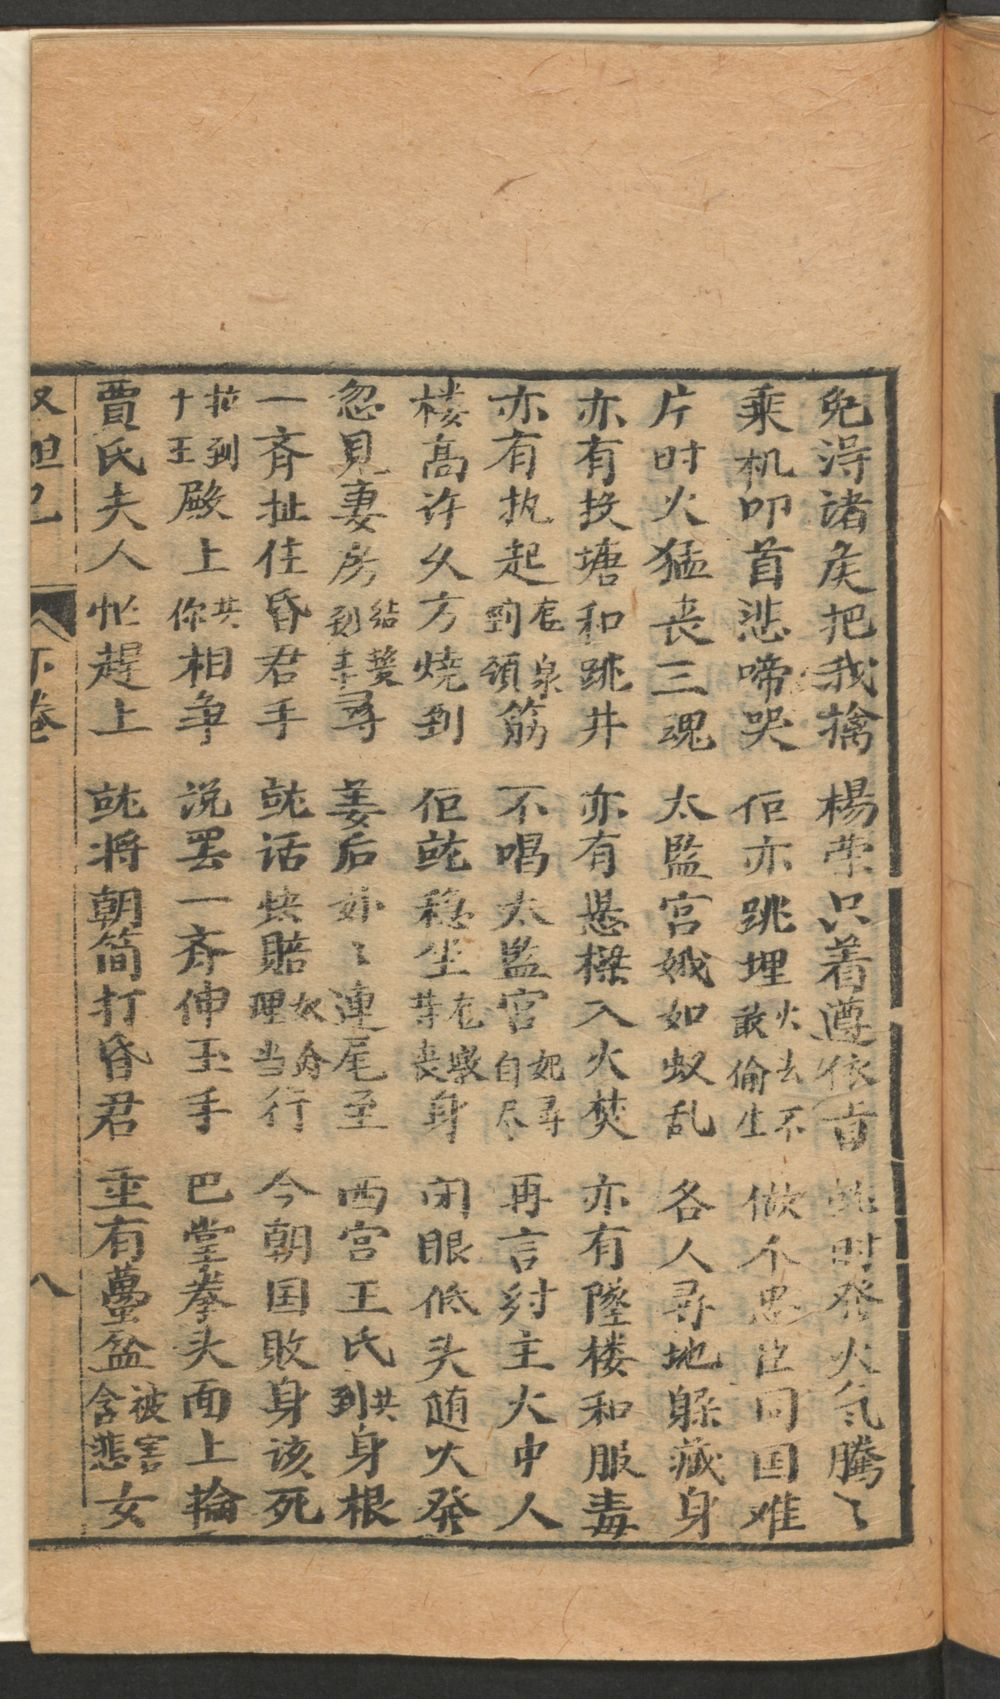 免得诸矦把我擒 楊荣只着遵依旨 就时发火气騰〻
乘机叩首悲啼哭 佢亦跳埋火去不敢偷生 做个忠臣同国难
片时火猛丧三魂 太監宫娥如蚁乱 各人尋地躲藏身
亦有投塘和跳井 亦有悬樑入火焚 亦有墜楼和服毒
亦有执起在泉劏頸筋 不唱太監宫妃尋自尽 再言紂主火中人
楼高许久方燒到 佢就稳坐在墩等丧身 闭眼低头随火発
忽見妻房到尋 姜后妳〻連尾至 西宫王氏共到身根
一斉扯住昏君手 就话快賠奴命理当行 今朝国敗身该死
拉到十王殿上共你相争 说罢一斉伸玉手 巴掌拳头面上掄
賈氏夫人忙趕上 就将朝简打昏君 重有蠆盆被害含悲女
妲己 下卷 八